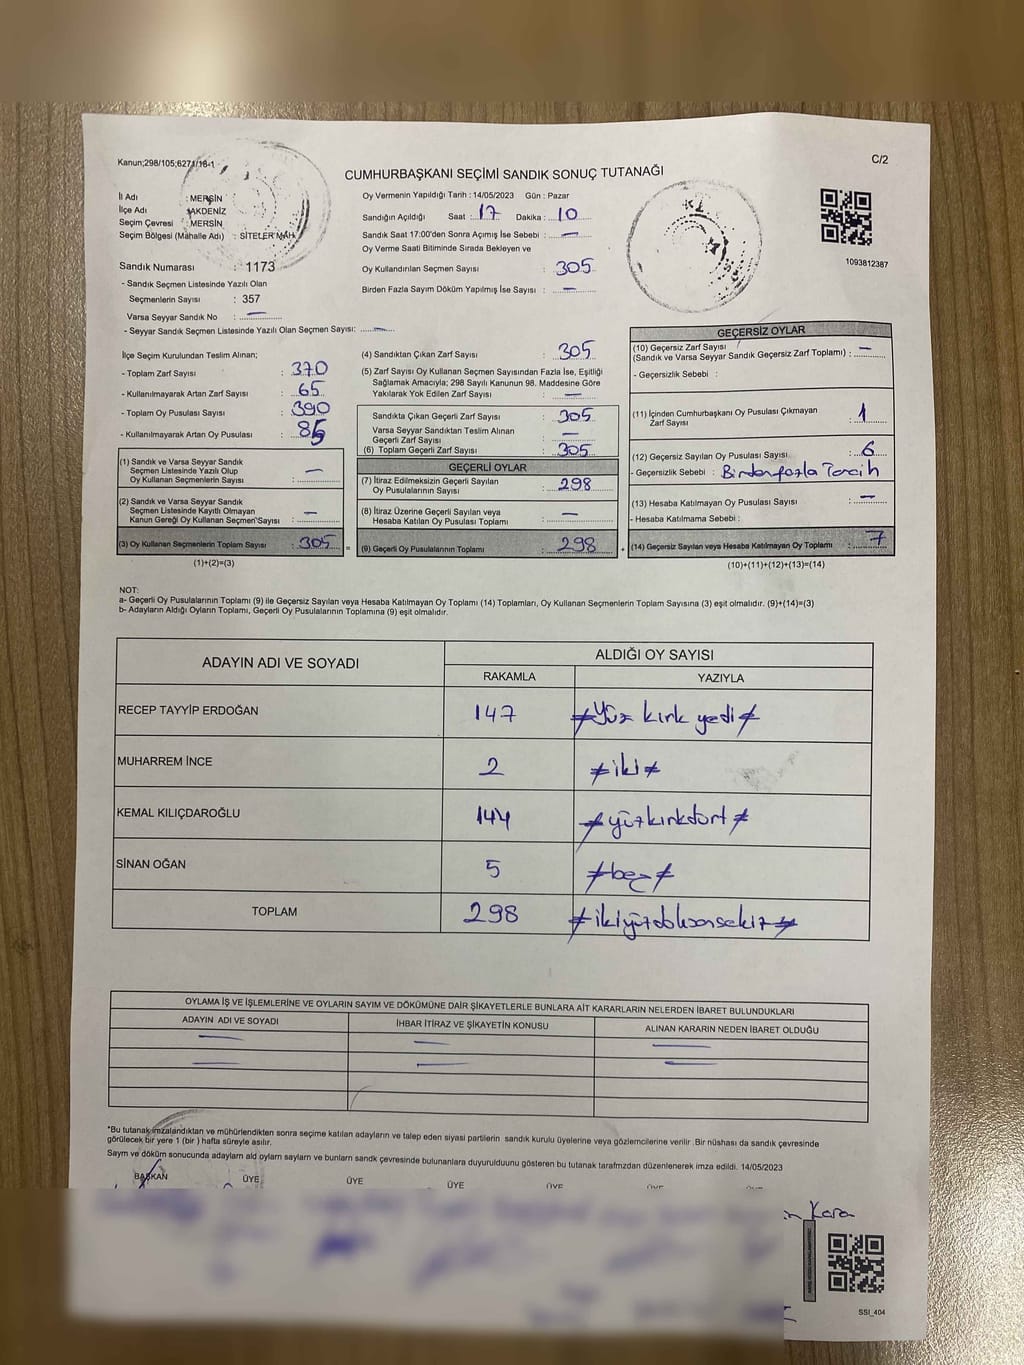 Kanun;298/105;6271/16-1
C/2
CUMHURBAŞKANI SEÇİMİ SANDIK SONUÇ TUTANAĞI
İl Adı : MERSİN
İlçe Adı : AKDENİZ
Seçim Çevresi : MERSİN
Seçim Bölgesi (Mahalle Adı) : SİTELER MAH.
Sandık Numarası : 1173
- Sandık Seçmen Listesinde Yazılı Olan
Seçmenlerin Sayısı : 357
Varsa Seyyar Sandık No : —
- Seyyar Sandık Seçmen Listesinde Yazılı Olan Seçmen Sayısı: —
Oy Vermenin Yapıldığı Tarih : 14/05/2023 Gün : Pazar
Sandığın Açıldığı Saat : 17 Dakika : 10
Sandık Saat 17:00'den Sonra Açımış İse Sebebi : —
Oy Verme Saati Bitiminde Sırada Bekleyen ve
Oy Kullandırılan Seçmen Sayısı : 305
Birden Fazla Sayım Döküm Yapılmış İse Sayısı : —
1093812387
İlçe Seçim Kurulundan Teslim Alınan;
- Toplam Zarf Sayısı : 370
- Kullanılmayarak Artan Zarf Sayısı : 65
- Toplam Oy Pusulası Sayısı : 390
- Kullanılmayarak Artan Oy Pusulası : 85
(1) Sandık ve Varsa Seyyar Sandık
Seçmen Listesinde Yazılı Olup
Oy Kullanan Seçmenlerin Sayısı : —
(2) Sandık ve Varsa Seyyar Sandık
Seçmen Listesinde Kayıtlı Olmayan
Kanun Gereği Oy Kullanan Seçmen Sayısı : —
(3) Oy Kullanan Seçmenlerin Toplam Sayısı : 305
(1)+(2)=(3)
(4) Sandıktan Çıkan Zarf Sayısı : 305
(5) Zarf Sayısı Oy Kullanan Seçmen Sayısından Fazla İse, Eşitliği
Sağlamak Amacıyla; 298 Sayılı Kanunun 98. Maddesine Göre
Yakılarak Yok Edilen Zarf Sayısı : —
Sandıkta Çıkan Geçerli Zarf Sayısı : 305
Varsa Seyyar Sandıktan Teslim Alınan
Geçerli Zarf Sayısı : —
(6) Toplam Geçerli Zarf Sayısı : 305
GEÇERLİ OYLAR
(7) İtiraz Edilmeksizin Geçerli Sayılan
Oy Pusulalarının Sayısı : 298
(8) İtiraz Üzerine Geçerli Sayılan veya
Hesaba Katılan Oy Pusulası Toplamı : —
= (9) Geçerli Oy Pusulalarının Toplamı : 298 +
GEÇERSİZ OYLAR
(10) Geçersiz Zarf Sayısı
(Sandık ve Varsa Seyyar Sandık Geçersiz Zarf Toplamı) : —
- Geçersizlik Sebebi :
(11) İçinden Cumhurbaşkanı Oy Pusulası Çıkmayan
Zarf Sayısı : 1
(12) Geçersiz Sayılan Oy Pusulası Sayısı : 6
- Geçersizlik Sebebi : Birden fazla Tercih
(13) Hesaba Katılmayan Oy Pusulası Sayısı : —
- Hesaba Katılmama Sebebi :
(14) Geçersiz Sayılan veya Hesaba Katılmayan Oy Toplamı : 7
(10)+(11)+(12)+(13)=(14)
NOT:
a- Geçerli Oy Pusulalarının Toplamı (9) ile Geçersiz Sayılan veya Hesaba Katılmayan Oy Toplamı (14) Toplamları, Oy Kullanan Seçmenlerin Toplam Sayısına (3) eşit olmalıdır. (9)+(14)=(3)
b- Adayların Aldığı Oyların Toplamı, Geçerli Oy Pusulalarının Toplamına (9) eşit olmalıdır.
ADAYIN ADI VE SOYADI ALDIĞI OY SAYISI
RAKAMLA YAZIYLA
RECEP TAYYİP ERDOĞAN 147 ≠Yüz kırk yedi≠
MUHARREM İNCE 2 ≠iki≠
KEMAL KILIÇDAROĞLU 144 ≠yüzkırkdört≠
SİNAN OĞAN 5 ≠beş≠
TOPLAM 298 ≠ikiyüzdoksansekiz≠
OYLAMA İŞ VE İŞLEMLERİNE VE OYLARIN SAYIM VE DÖKÜMÜNE DAİR ŞİKAYETLERLE BUNLARA AİT KARARLARIN NELERDEN İBARET BULUNDUKLARI
ADAYIN ADI VE SOYADI İHBAR İTİRAZ VE ŞİKAYETİN KONUSU ALINAN KARARIN NEDEN İBARET OLDUĞU
— — —
— — —
*Bu tutanak imzalandıktan ve mühürlendikten sonra seçime katılan adayların ve talep eden siyasi partilerin sandık kurulu üyelerine veya gözlemcilerine verilir .Bir nüshası da sandık çevresinde
görülecek bir yere 1 (bir ) hafta süreyle asılır.
Sayım ve döküm sonucunda adayların ald oyların sayların ve bunların sandk çevresinde bulunanlara duyurulduunu gösteren bu tutanak tarafmzdan düzenlenerek imza edildi. 14/05/2023
BAŞKAN ÜYE ÜYE ÜYE ÜYE ÜYE ÜYE
Kara
SSI_404